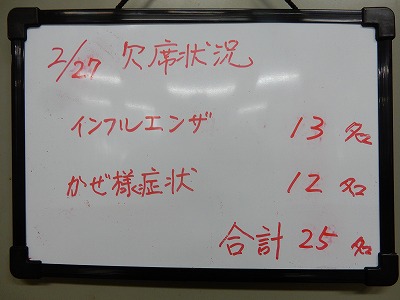 2/27 欠席状況
インフルエンザ 13名
かぜ様症状 12名
合計 25名